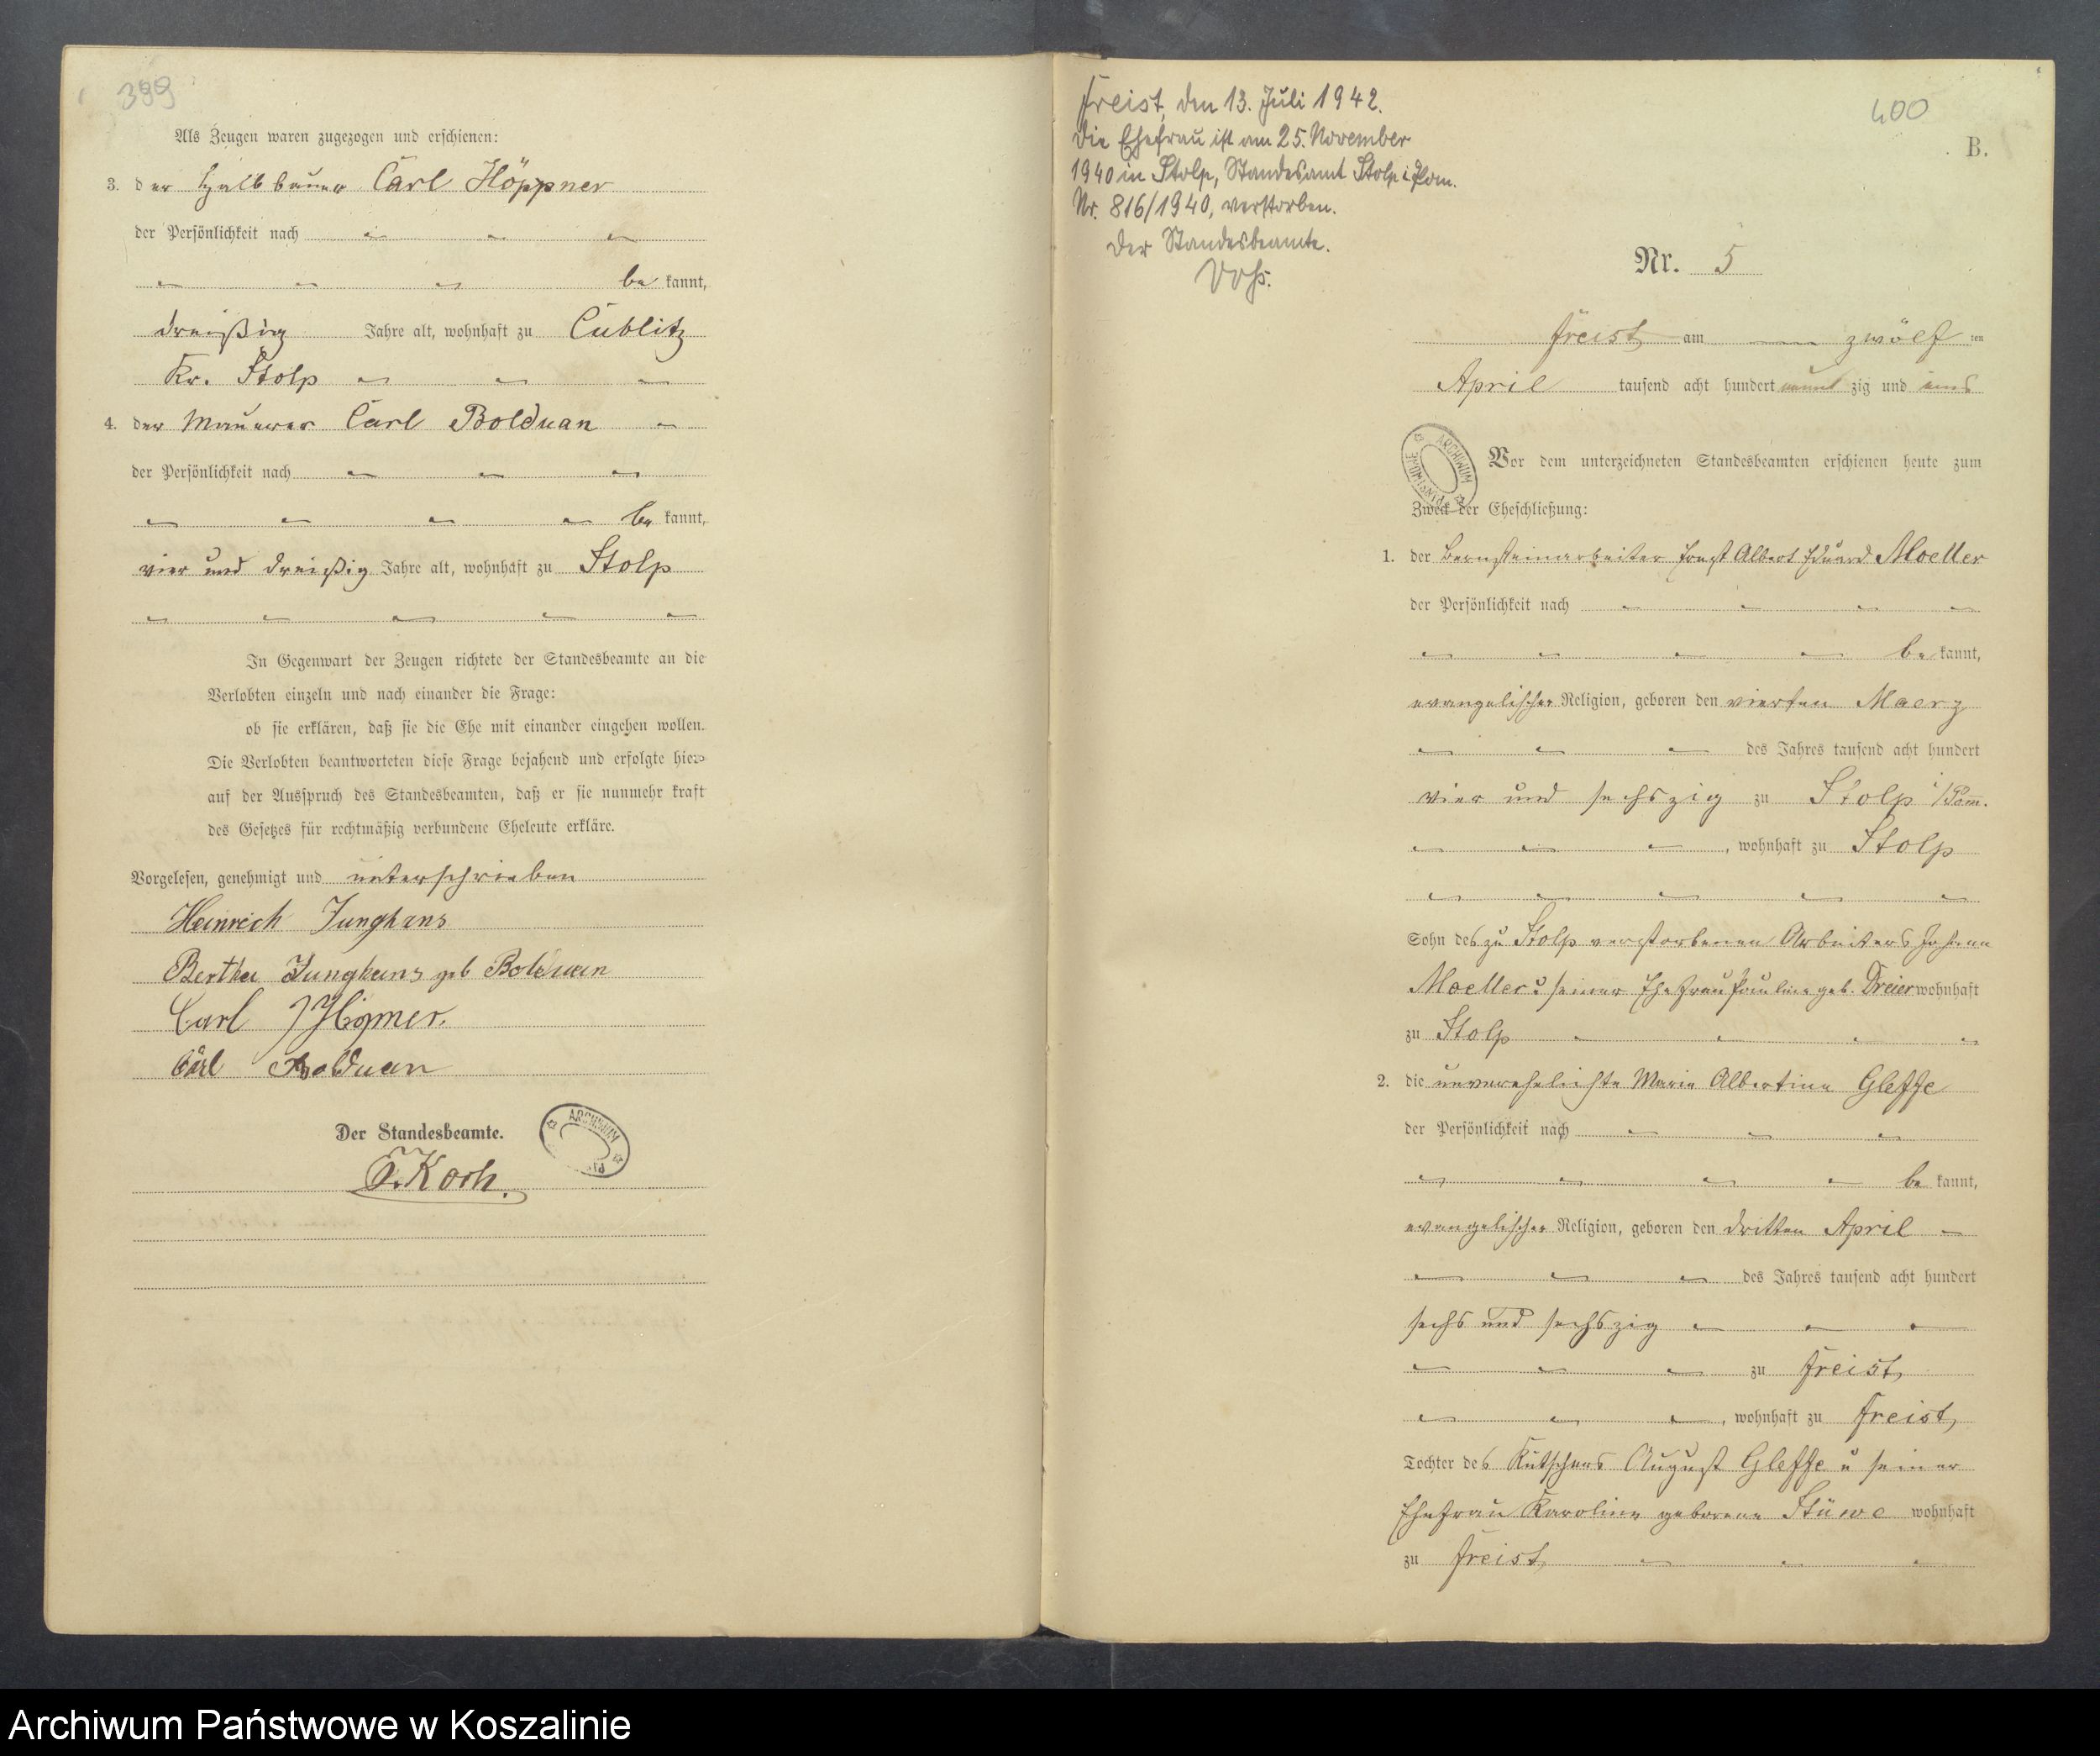 399
Als Zeugen waren zugezogen und erschienen:
3. der Halbbauer Carl Höppner
der Persönlichkeit nach
be kannt,
dreißig Jahre alt, wohnhaft zu Cublitz
Kr. Stolp
4. der Maurer Carl Bolduan
der Persönlichkeit nach
be kannt,
vier und dreißig Jahre alt, wohnhaft zu Stolp
In Gegenwart der Zeugen richtete der Standesbeamte an die
Verlobten einzeln und nach einander die Frage:
ob sie erklären, daß sie die Ehe mit einander eingehen wollen.
Die Verlobten beantworteten diese Frage bejahend und erfolgte hier-
auf der Ausspruch des Standesbeamten, daß er sie nunmehr kraft
des Gesetzes für rechtmäßig verbundene Eheleute erkläre.
Vorgelesen, genehmigt und unterschrieben
Heinrich Junghans
Bertha Junghans geb Bolduan
Carl
Carl Bolduan
Der Standesbeamte.
ARCHIWUM
Koch.
Freist, den 13. Juli 1942.
Die Ehefrau ist am 25. November
1940 in Stolp, Standesamt Stolp i Pom.
Nr. 816/1940, verstorben.
Der Standesbeamte.
400
B.
Nr. 5
Freist am zwölf ten
April tausend acht hundert neun zig und eins
ARCHIWUM PAŃSTWOWE
Vor dem unterzeichneten Standesbeamten erschienen heute zum
Zweck der Eheschließung:
1. der Bernsteinarbeiter Ernst Albert Eduard Moeller
der Persönlichkeit nach
be kannt,
evangelischer Religion, geboren den vierten Maerz
des Jahres tausend acht hundert
vier und sechszig zu Stolp i/Pomm.
, wohnhaft zu Stolp
Sohn des zu Stolp verstorbenen Arbeiters Johann
Moeller u seiner Ehefrau Pauline geb. Dreier wohnhaft
zu Stolp
2. die unverehelichte Marie Albertine Gleffe
der Persönlichkeit nach
be kannt,
evangelischer Religion, geboren den dritten April
des Jahres tausend acht hundert
sechs und sechszig
zu Freist,
, wohnhaft zu Freist,
Tochter des Kutschers August Gleffe u seiner
Ehefrau Karoline geborene Stüwe wohnhaft
zu Freist,
Archiwum Państwowe w Koszalinie